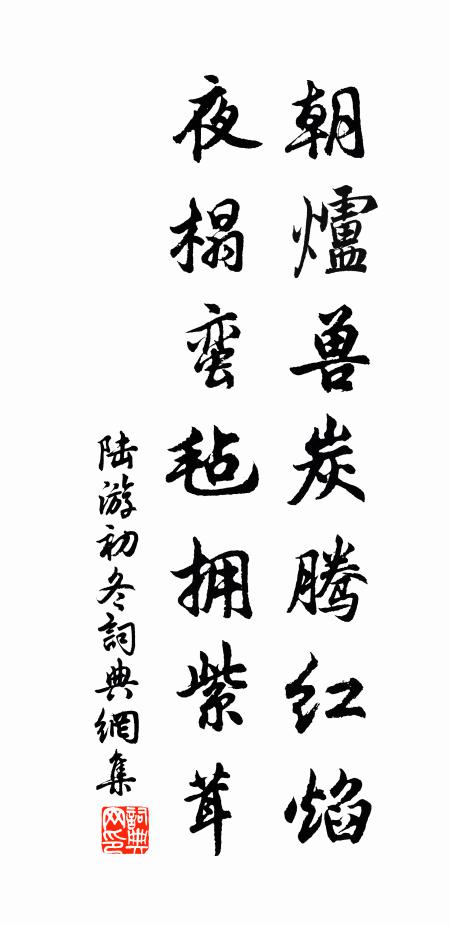 朝爐兽炭腾红焰
夜榻蛮毡拥紫茸
陆游初冬詞典網集
詞典网印